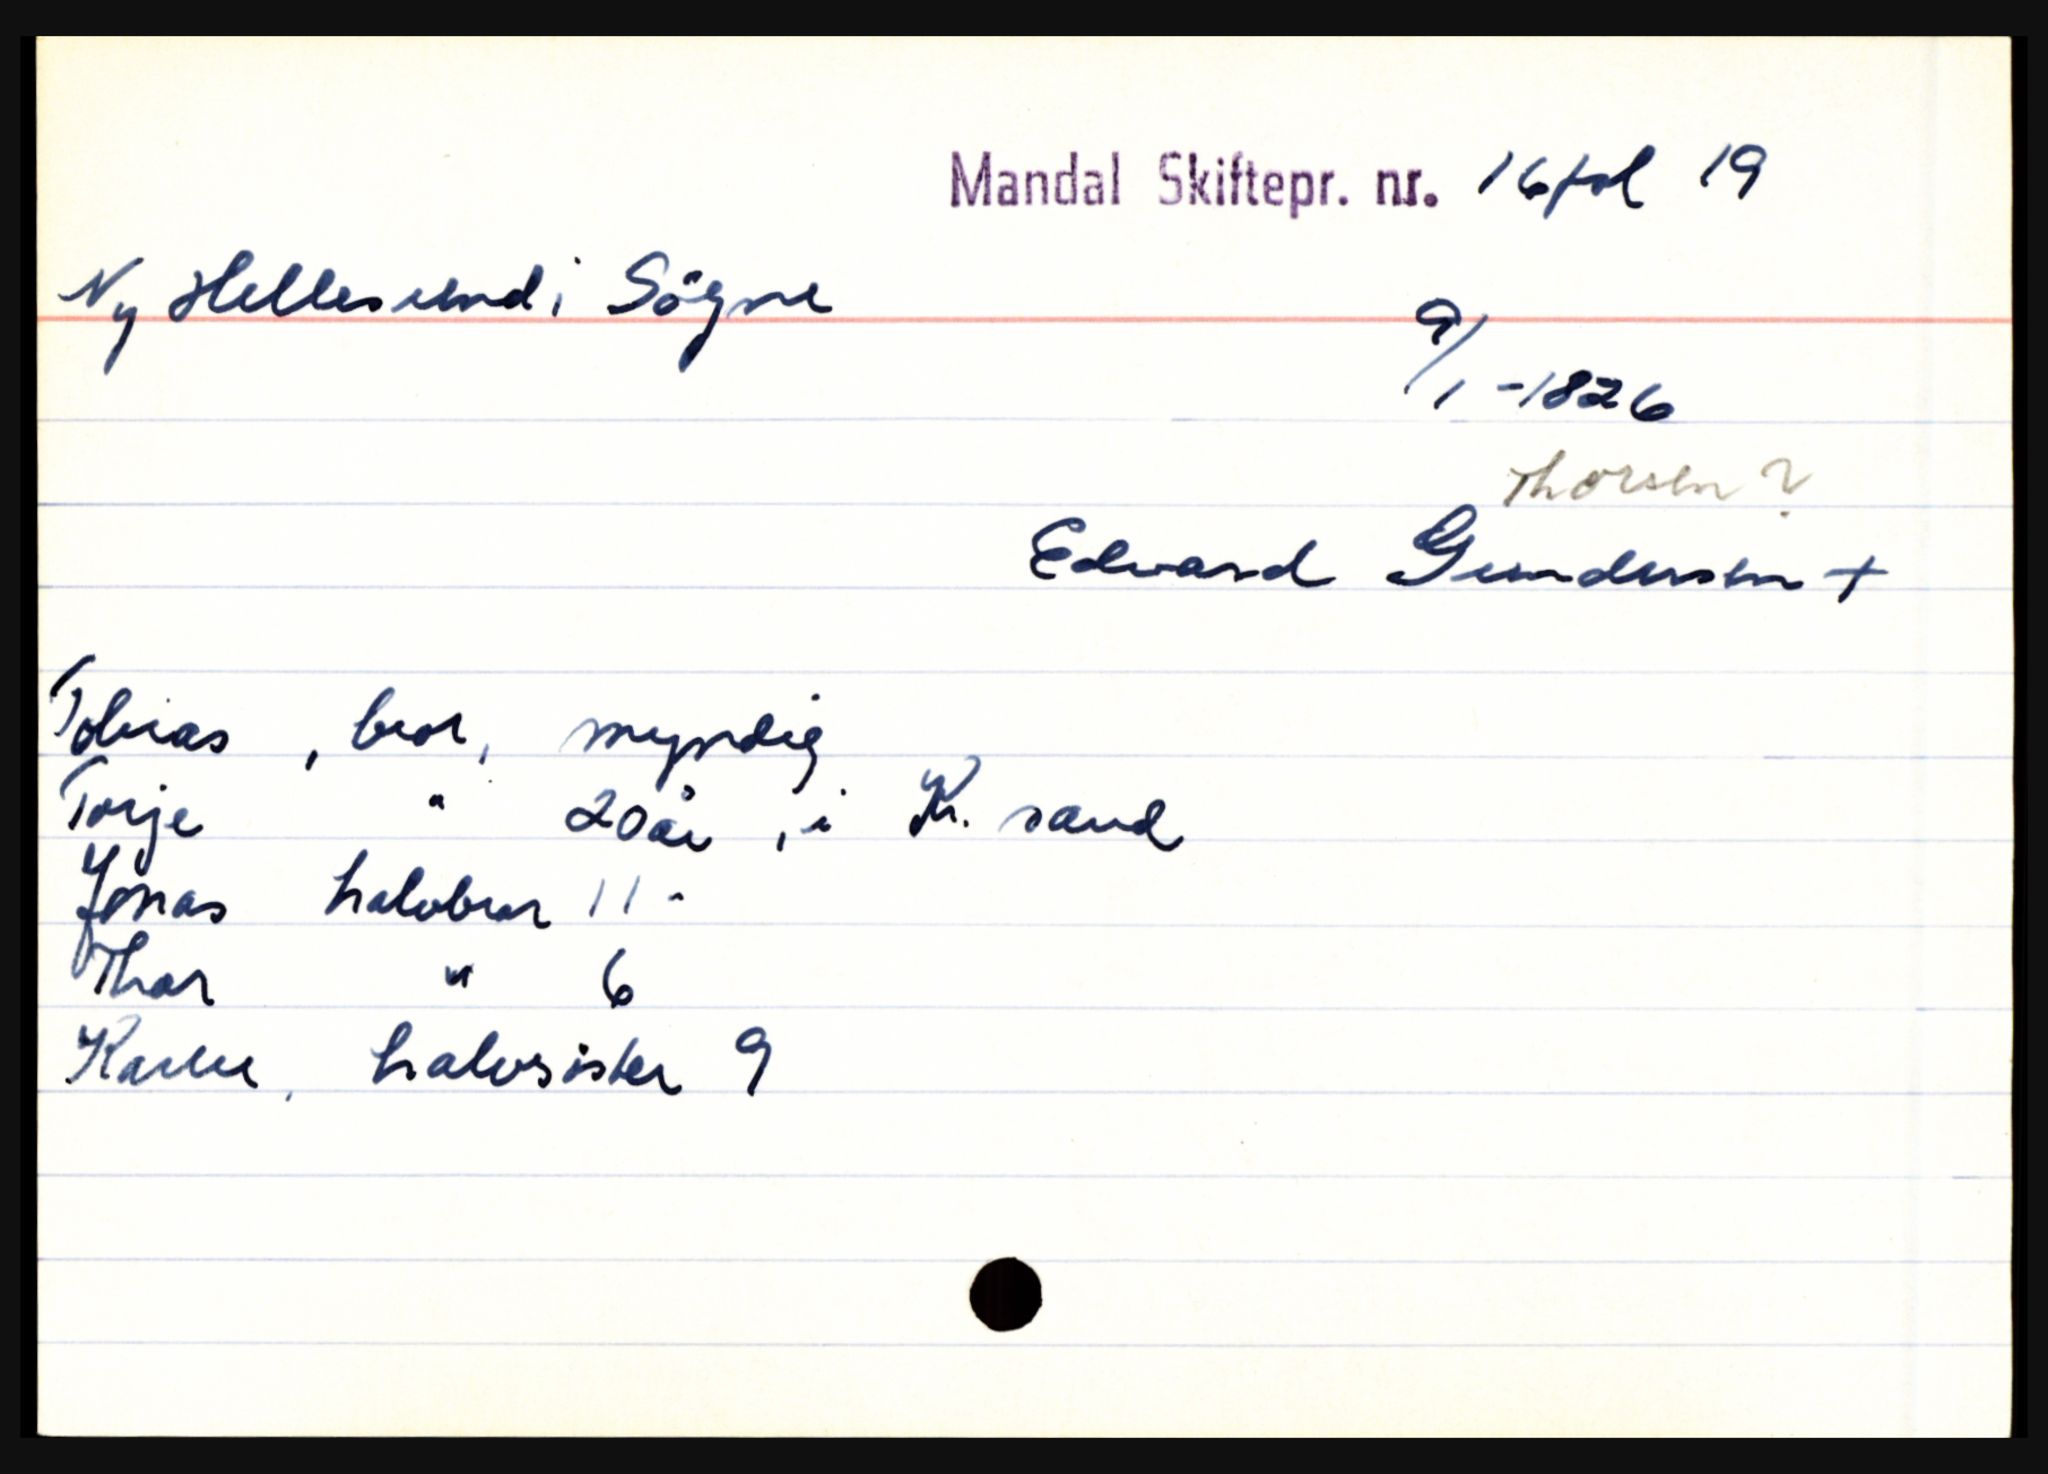 Mandal Skiftepr. nr. 16 fol 19
Ny Hellesund i Sögne
9/1 - 1826
Thorsen ?
Edvard Gundersen +
Tobias , bror, myndig
Torje " 20 år , i Kr. sand
Jonas halvbror 11 "
Thor " 6
Karen , halvsister 9